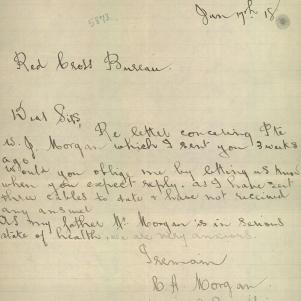 Jan 17th 18
5873
Red Cross Bureau.
Dear Sirs,
Re letter concering Pte
W. J. Morgan which I sent you 3 weeks
ago
Would you oblige me by letting us know
when you expect reply. as I have sent
three cables to date & have not received
any answer
As my father Mr Morgan is in serious
state of health, we are very anxious.
I remain
Morgan